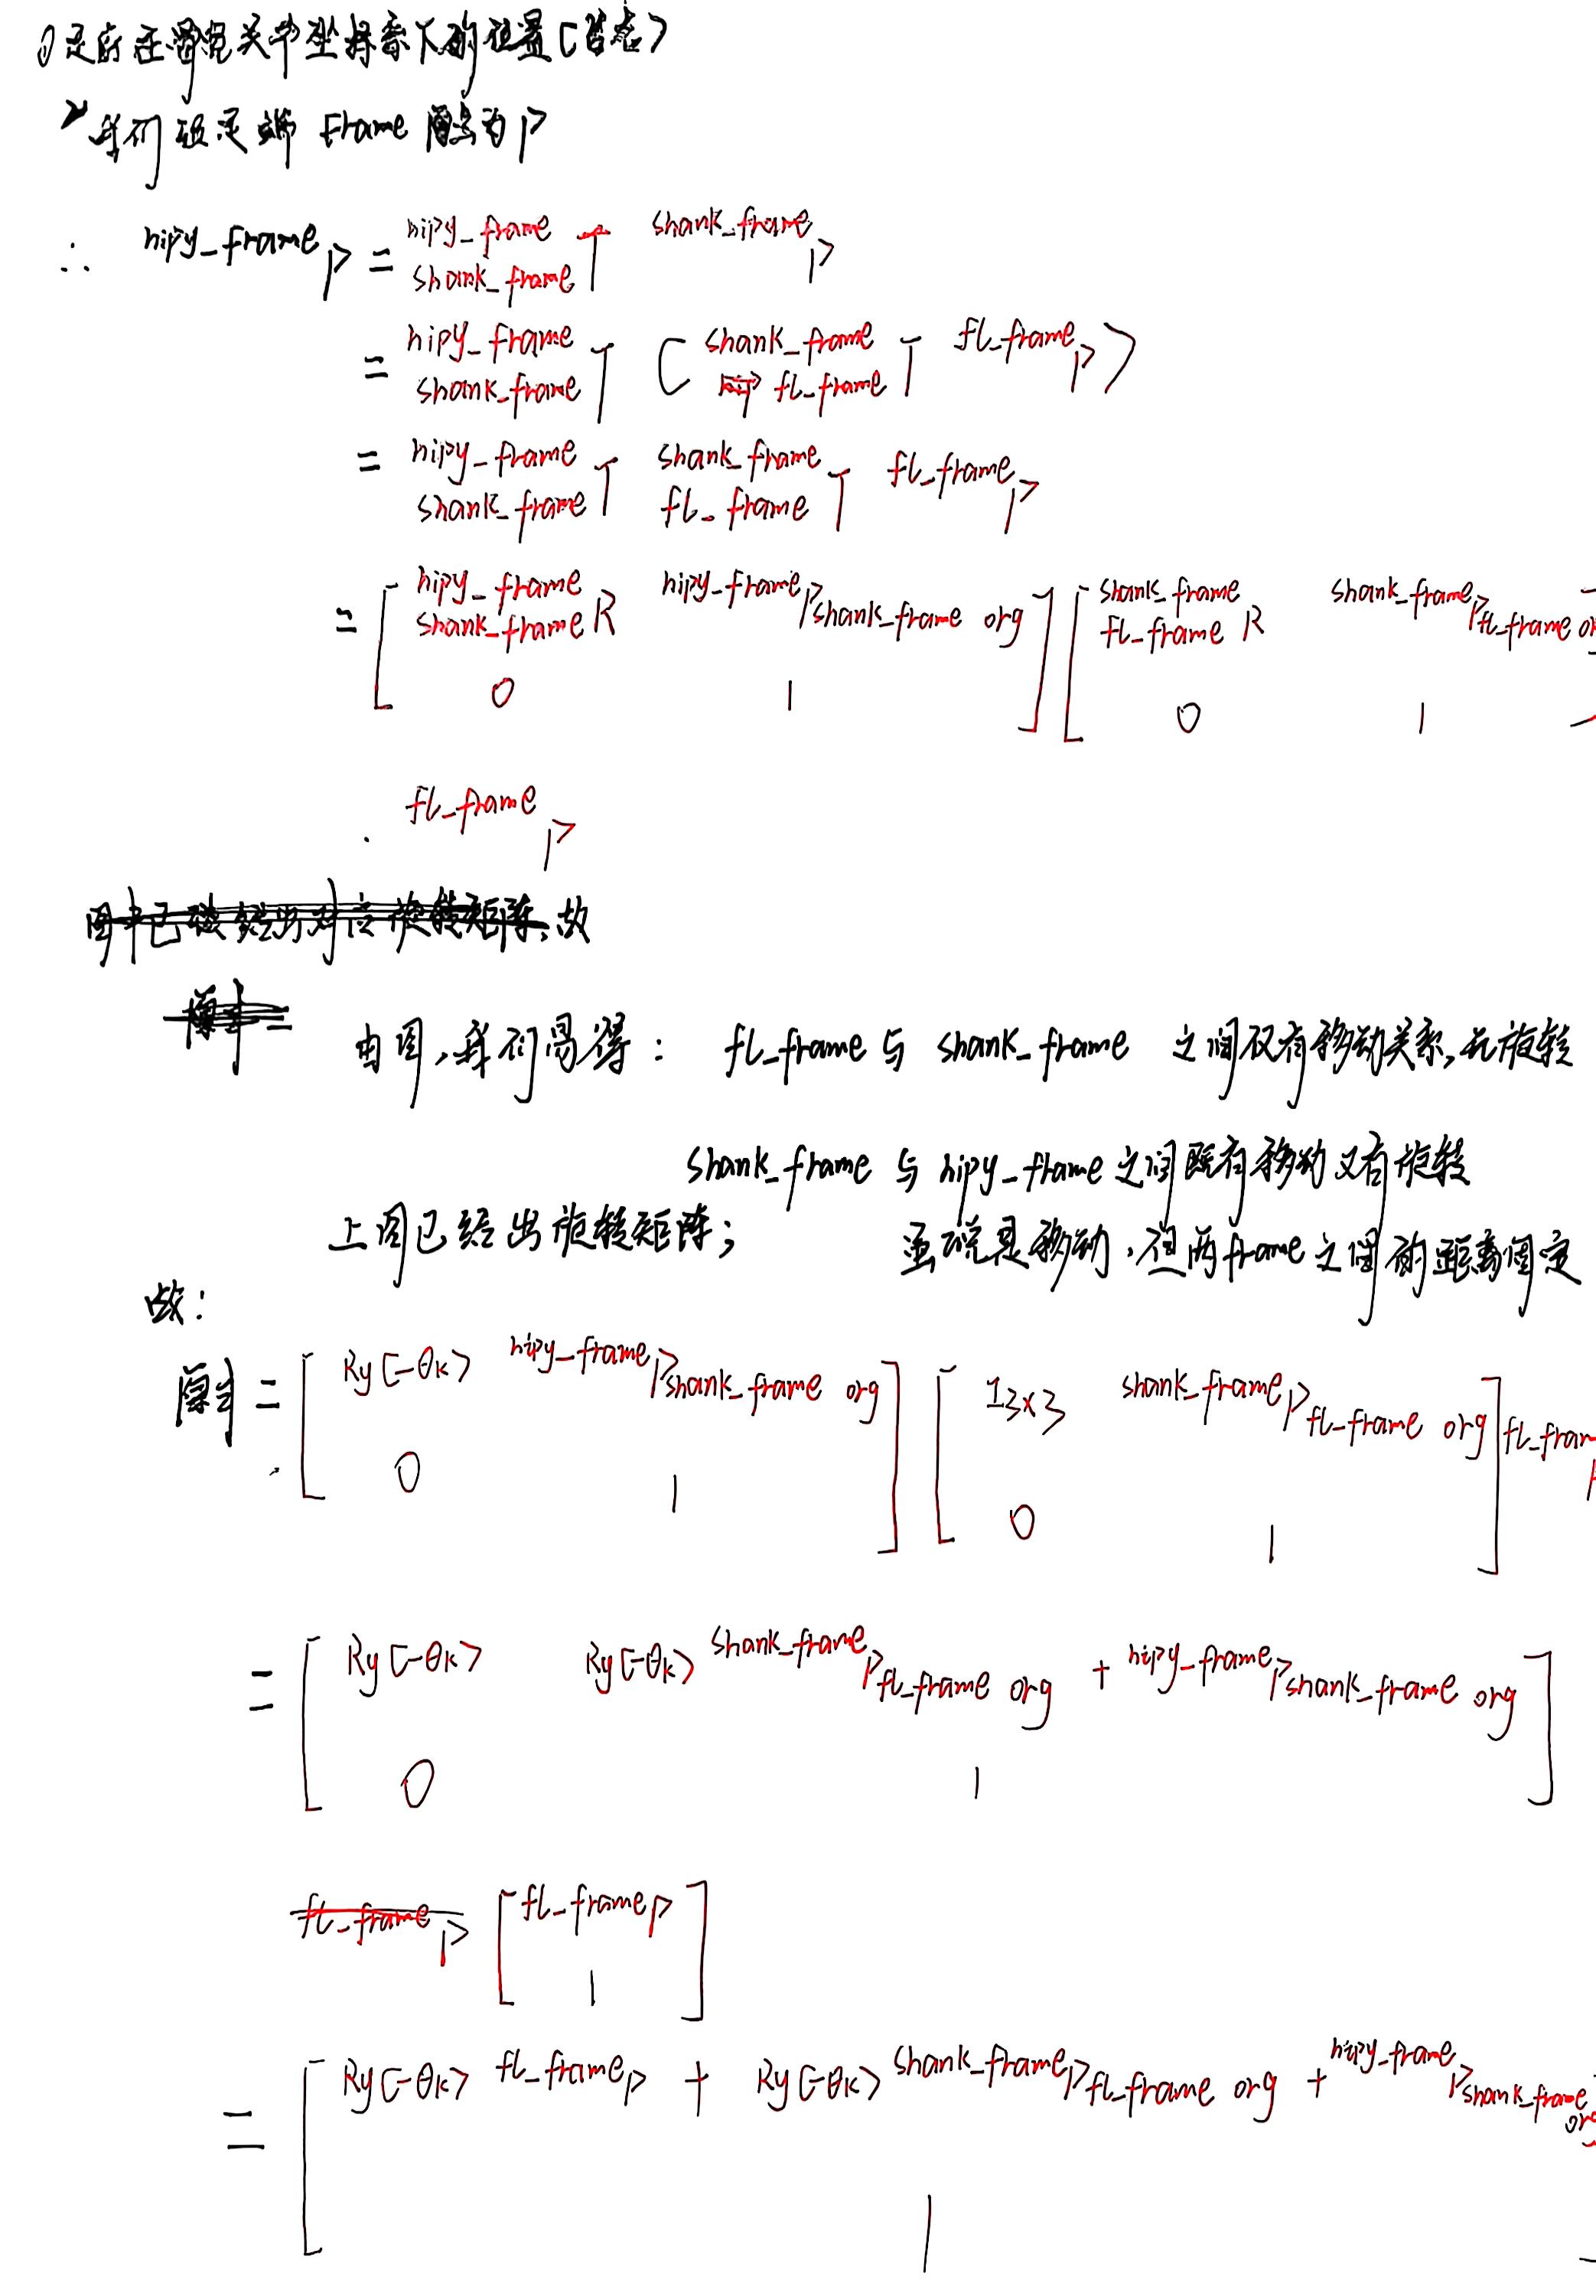 ①足底在髋宽关节坐标系下的位置(姿态)
我们设足端 Frame 原点为P
∴ hipy_frame P = hipy_frame shank_frame T shank_frame P
= hipy_frame shank_frame T ( shank_frame fl_frame T fl_frame P )
= hipy_frame shank_frame T shank_frame fl_frame T fl_frame P
= [ hipy_frame shank_frame R hipy_frame P shank_frame org ] [ shank_frame fl_frame R shank_frame P fl_frame or
0 1 0 1
· fl_frame P
故
由图,我们易得: fl_frame 与 shank_frame 之间仅有移动关系,无旋转
shank_frame 与 hipy_frame 之间既有移动又有旋转
上图已给出旋转矩阵; 虽说是移动,但两frame之间的距离固定
故:
原式 = [ Ry(-θk) hipy_frame P shank_frame org ] [ I3×3 shank_frame P fl_frame org ] fl_fram
0 1 0 1
= [ Ry(-θk) Ry(-θk) shank_frame P fl_frame org + hipy_frame P shank_frame org ]
0 1
fl_frame P [ fl_frame P ]
1
= [ Ry(-θk) fl_frame P + Ry(-θk) shank_frame P fl_frame org + hipy_frame P shank_frame org
1